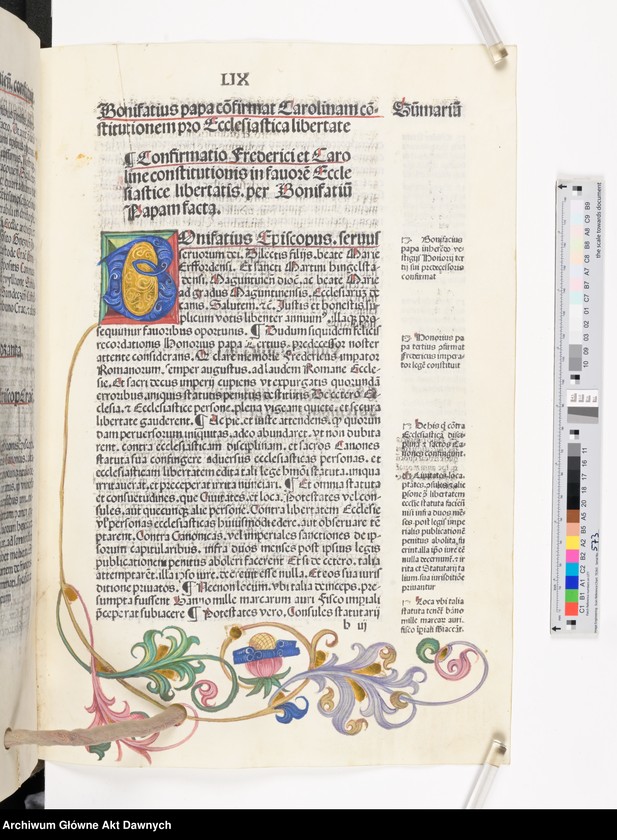 LIX
Bonifatius papa cōfirmat Carolinam cō-
stitutionem pro Ecclesiastica libertate
Sūmariū
¶ Confirmatio Frederici et Caro
line constitutionis in fauorē Eccle
siastice libertatis. per Bonifatiū
Papam factą.
BOnifatius Episcopus. seruus
seruorum dei. Dilectis filijs. beate Marie
Erffordensi. Et sancti Martini
ad gradus Maguntinensis. Ecclesiarū de
canis. Salutem. ꝛc. Iustis et honestis su
plicum votis libenter annuim⁹. illaqꝫ pro-
sequimur fauoribus oportunis. ¶ Dudum siquidem felicis
recordationis Honorius papa Tertius. predecessor noster
attente considerans. Et clare memorie Fredericus impator
Romanorum. semper augustus. ad laudem Romane Eccle-
sie. Et sacri decus imperij cupiens vt expurgatis quorundā
erroribus. iniquis statutis penitus destitutis De cetero E-
clesia. ꝛ Ecclesiastice persone. plena vigeant quiete. et secura
libertate gauderent. ¶ Ac pie. et iuste attendens. ꝙ quorun
dam peruersorum iniquitas. adeo abundaret. vt non dubita
rent. contra ecclesiasticam disciplinam. et sacros Canones
statuta sua confingere aduersus ecclesiasticas personas. et
ecclesiasticam libertatem edita tali lege hmōi statuta. iniqua
irritauerat. et preceperat irrita nunciari. ¶ Et omnia statuta
et consuetudines. que Ciuitates. et loca. Potestates vel con-
sules. aut quecunqꝫ alie persone. Contra libertatem Ecclesie
vl' personas ecclesiasticas huiusmodi edere. aut obseruare tē
ptarent. Contra Canonicas. vel imperiales sanctiones de ip-
sorum capitularibus. infra duos menses post ipsius legis
publicationem penitus aboleri facerent Et si de cetero. talia
attemptarēt. illa ipso iure. decreuit esse nulla. Et eos sua iuris
ditione priuatos. ¶ Necnon locum. vbi talia deinceps. pre-
sumpta fuissent Banno mille marcarum auri Fisco impiali
pceperat subiacere ¶ Potestates vero. Consules statutarij
b iij
Bonifacius
confirmat
Honorius pa
pa tertius
Fredericus impera-
tor legē constituit
De his ꝙ cōtra
Ecclesiastica
plina ꝛ sacros Ca-
nones confingunt.
Ciuitates. loca.
libertatem
eccle statuta faciūt
nisi infra duos mē-
ses. post legis impe
rialis publicationē
penitus abolita. fu
erint. illa ipo iure eē
nulla
etiā et Statutarij ta
lium. sua iurisditiōe
priuantur
Loca vbi talia
statuta
mille marcar auri.
Archiwum Główne Akt Dawnych
the scale towards document
573